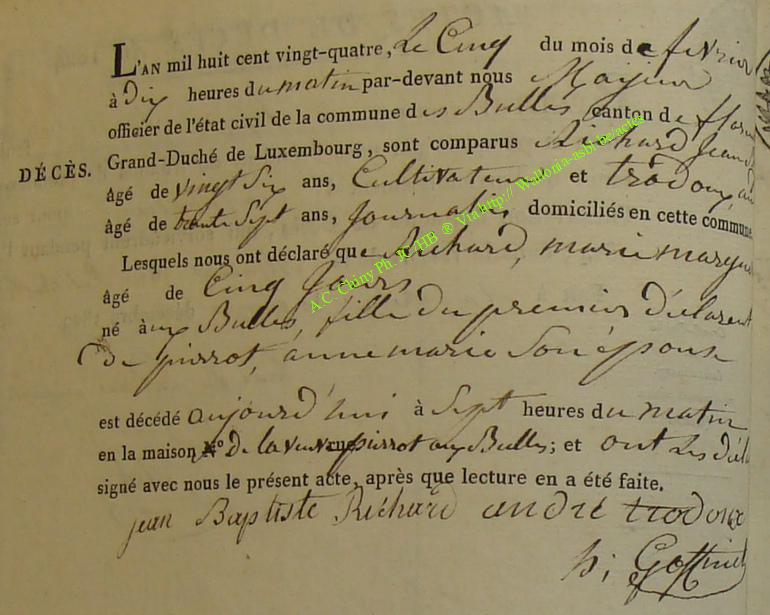 L'AN mil huit cent vingt-quatre, le Cinq du mois de fevrier
à Dix heures du matin par-devant nous Mayeur
officier de l'état civil de la commune des Bulles, canton de
DÉCÈS. Grand-Duché de Luxembourg, sont comparus Richard Jean
âgé de vingt Six ans, Cultivateur et trodoux,
âgé de trente Sept ans, Journalier domiciliés en cette commune
Lesquels nous ont déclaré que Richard, marie margue
âgé de Cinq Jours
né aux Bulles, fille du premier déclarent
de pierrot, anne marie Son épouse
est décédé aujourd'hui à Sept heures du matin
en la maison N° de la veuve pierrot aux Bulles; et ont les
signé avec nous le présent acte, après que lecture en a été faite.
jean Baptiste Richard andré trodoux
h; Goffinet
A.C. Chiny Ph. JC HB ® Via http:// Wallonia-asbl.be/actes